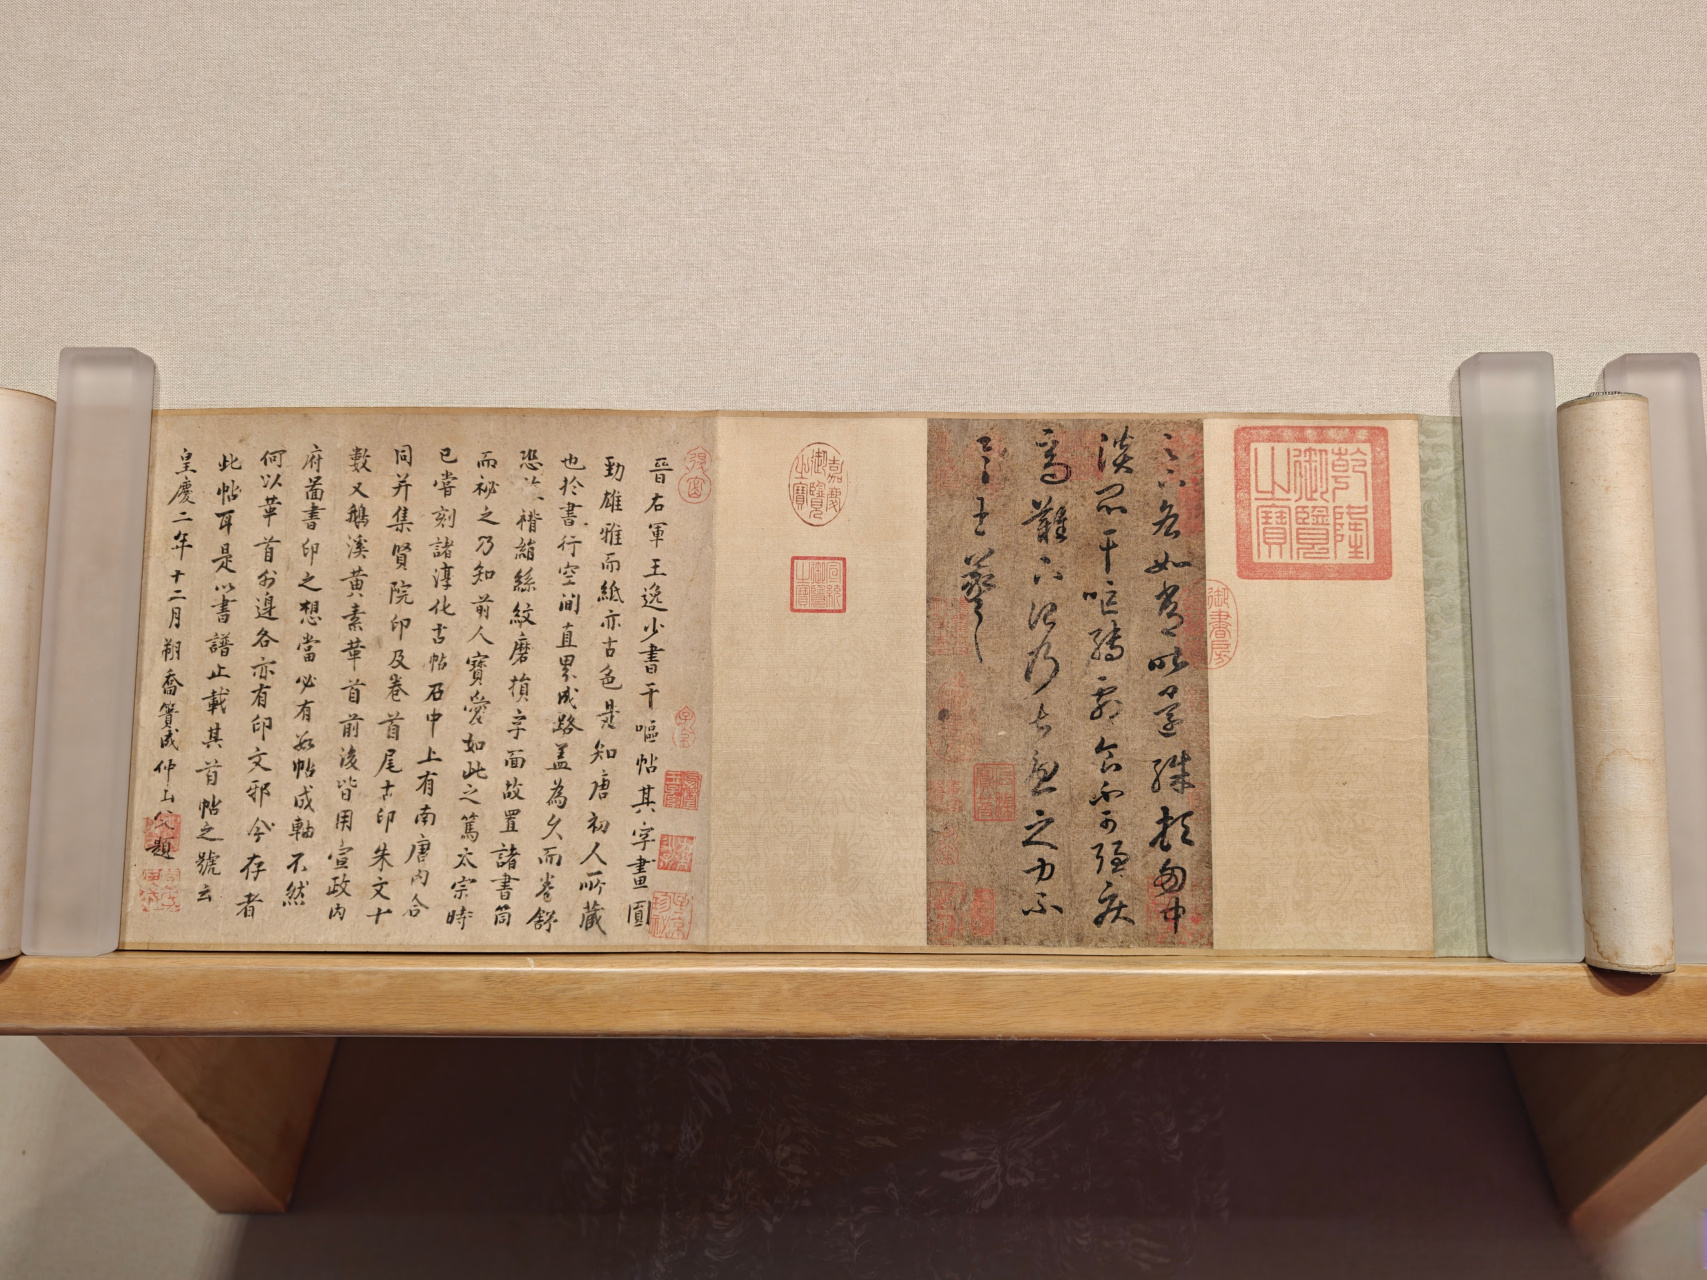 乾隆御覽之寶
御書房
足下各如常昨還殊頓匈中
淡悶干嘔轉劇食不可強疾
高難下治乃甚憂之力不
一一王羲之
嘉慶御覽之寶
宣統御覽之寶
晉右軍王逸少書干嘔帖其字畫圓
勁雄雅而紙亦古色是知唐初人所藏
也於書行空間直界成路蓋為久而卷舒
恐褙絹絲紋磨損字面故置諸書筒
而祕之乃知前人寶愛如此之篤太宗時
已嘗刻諸淳化古帖石中上有南唐內合
同并集賢院印及卷首尾古印朱文十
數又鵝溪黃素莘首前後皆用宣政內
府圖書印之想當必有數帖成軸不然
何以莘首外邊各亦有印文邪今存者
此帖耳是以書譜止載其首帖之號云
皇慶二年十二月朔喬簣成仲山父題